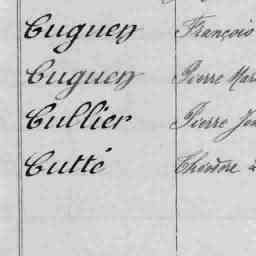 Cuguen François
Cuguen Pierre Mar
Cullier Pierre
Cutté Théodore